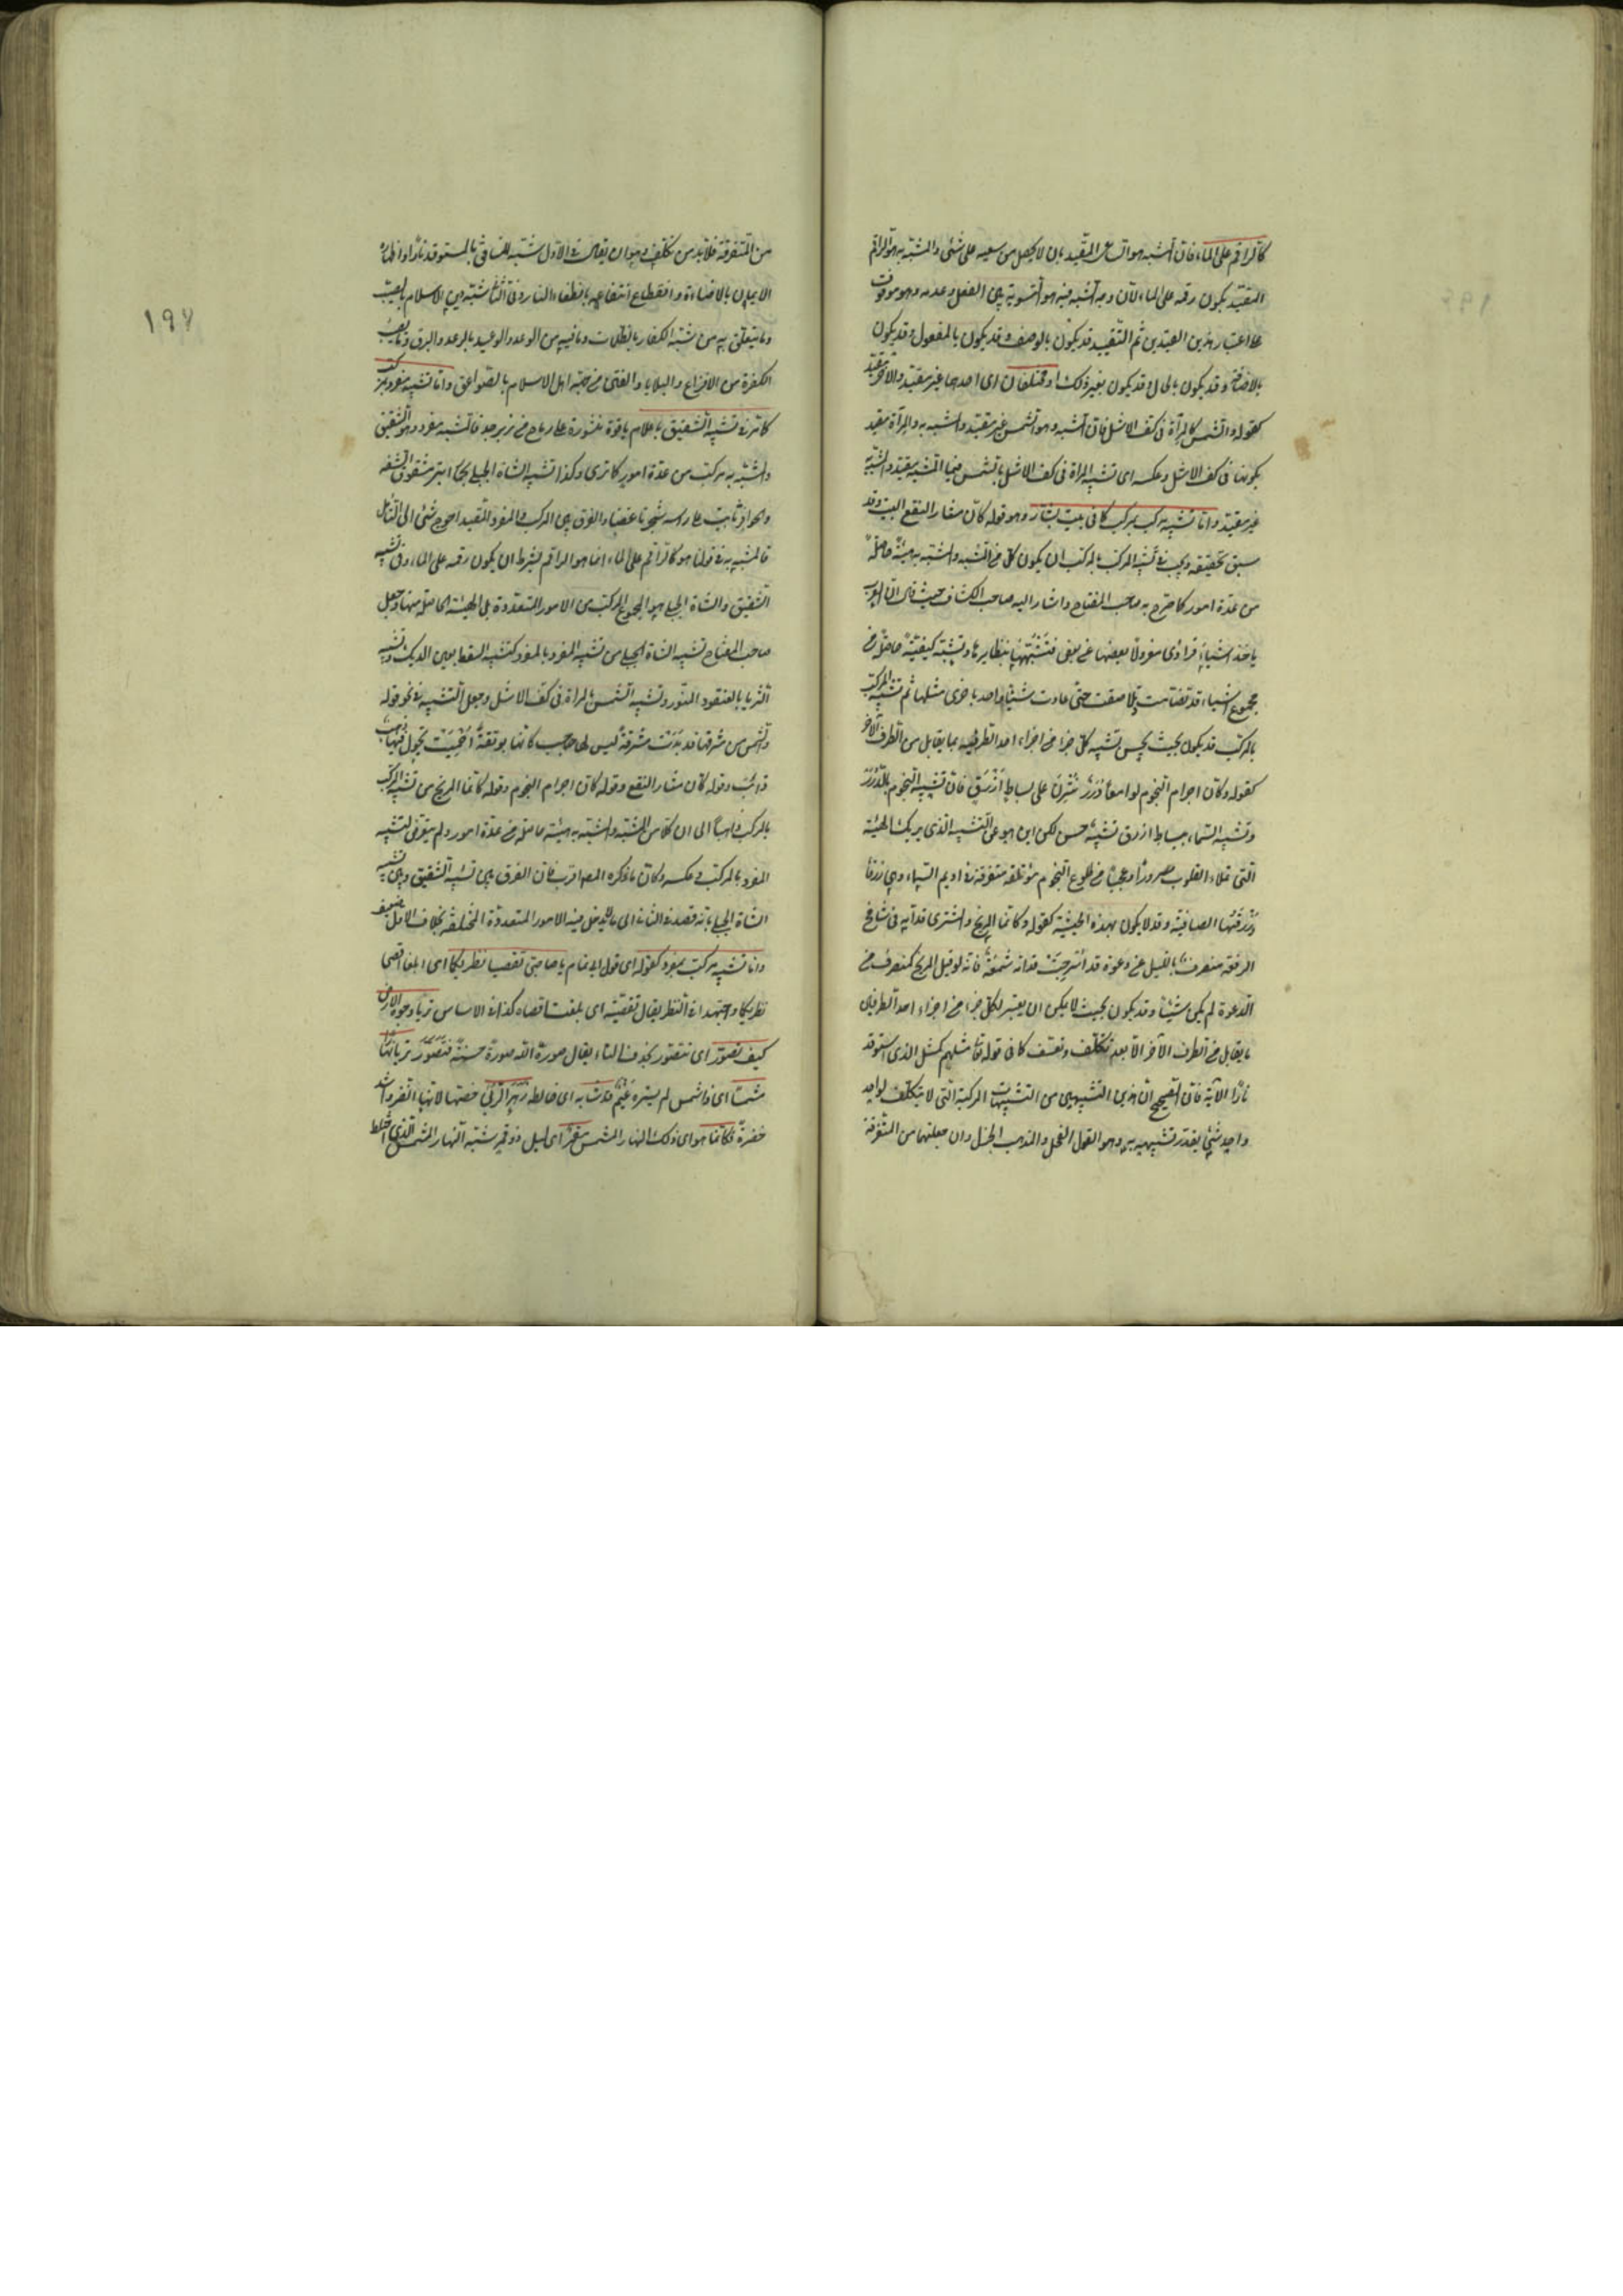 كالراقم على الماء فان المشبه هو الساعى المقيد بان لا يحصل من سعيه على شئ والمشبه به هو الراقم
المقيد بكون رقمه على الماء لان وجه الشبه فيه هو التسوية بين الفعل وعدمه وهو موقوف
على اعتبار هذين القيدين ثم التقييد قد يكون بالوصف وقد يكون بالمفعول وقد يكون
بالاضافة وقد يكون بالحال وقد يكون بغير ذلك او مختلفان اى احدهما غير مقيد والآخر مقيد
كقوله والشمس كالمرآة فى كف الاشل فان المشبه وهو الشمس غير مقيد والمشبه به والمرآة مقيد
بكونها فى كف الاشل وعكسه اى تشبيه المرآة فى كف الاشل بالشمس فيما المشبه مقيد والمشبه به
غير مقيد واما تشبيه مركب بمركب كما فى بيت بشار وهو قوله كان مثار النقع البيت وقد
سبق تحقيقه ويجب فى تشبيه المركب بالمركب ان يكون كل من المشبه والمشبه به هيئة حاصلة
من عدة امور كما صرح به صاحب المفتاح واشار اليه صاحب الكشاف حيث قال ان العرب
ياخذ اشياء فرادى معزولا بعضها عن بعض فتشبهها بنظايرها وتشبه كيفية حاصلة من
مجموع اشياء قد تضامت وتلاصقت حتى عادت شيئا واحدا باخرى مثلها ثم تشبيه المركب
بالمركب قد يكون بحيث يحسن تشبيه كل جزء من اجزاء احد الطرفين بما يقابل من الطرف الآخر
كقوله وكان اجرام النجوم لوامعا درر نثرن على بساط ازرق فان تشبيه النجوم بالدرر
وتشبيه السماء ببساط ازرق تشبيه حسن لكن اين هو عن التشبيه الذى يريك الهيئة
التى تملاء القلوب سرورا وعجبا من طلوع النجوم مؤتلفة متفرقة فى اديم السماء وهى زرقاء
زرقتها الصافية وقد لا يكون بهذه الحيثية كقوله وكانما المريخ والمشترى قدامه فى شامخ
الرفعة منصرف بالليل عن دعوة قد اسرجت قدامه شمعة فانه لو قيل المريخ كمنصرف من
الدعوة لم يكن شيئا وقد يكون بحيث لا يمكن ان يعتبر لكل جزء من اجزاء احد الطرفين
ما يقابل من الطرف الآخر الا بعد تكلف وتعسف كما فى قوله تعا مثلهم كمثل الذى استوقد
نارا الآية فان الصحيح ان هذين التشبيهين من التشبيهات المركبة التى لا يتكلف لواحد
واحد شئ يقدر تشبيهه به وهو القول الفحل والمذهب الجزل وان جعلتهما من المتفرقة
من المتفرقة فلا بد من تكلف وهو ان يقال فى الاول شبه المنافق بالمستوقد نارا واظهاره
الايمان بالاضاءة وانقطاع انتفاعه بانطفاء النار وفى الثانى شبه دين الاسلام بالصيب
وما يتعلق به من شبه الكفار بالظلمات وما فيه من الوعد والوعيد بالرعد والبرق وما يصيب
الكفرة من الافزاع والبلايا والفتن من جهة اهل الاسلام بالصواعق واما تشبيه مفرد بمركب
كما مر فى تشبيه الشقيق باعلام ياقوت منشورة على رماح من زبرجد فالمشبه مفرد وهو الشقيق
والمشبه به مركب من عدة امور كما ترى وكذا تشبيه الشاة الجبلى بحمار ابتر مشقوق الشفة
والحوافر نابت على راسه شجرتا غضا والفرق بين المركب والمفرد المقيد احوج شئ الى التامل
فالمشبه به فى قولنا هو كالراقم على الماء انما هو الراقم بشرط ان يكون رقمه على الماء وفى تشبيه
الشقيق والشاة الجبلى هو المجموع المركب من الامور المتعددة بل الهيئة الحاصلة منها وجعل
صاحب المفتاح تشبيه الشاة الجبلى من تشبيه المفرد بالمفرد كتشبيه السقط بعين الديك وتشبيه
الثريا بالعنقود المنور وتشبيه الشمس بالمرآة فى كف الاشل وجعل التشبيه فى نحو قوله
والشمس من مشرقها قد بدت مشرقة ليس لها حاجب كانها بوتقة احميت يجول فيها ذهب
ذائب وقوله كان مثار النقع وقوله كان اجرام النجوم وقوله كانما المريخ من تشبيه المركب
بالمركب ذاهبا الى ان كلا من المشبه والمشبه به هيئة حاصلة من عدة امور ولم يتعرض لتشبيه
المفرد بالمركب وعكسه وكان ما ذكره المص اقرب فان الفرق بين تشبيه الشقيق وبين تشبيه
الشاة الجبلى بانه قصد فى الثانى الى ما يدخل فيه الامور المتعددة المختلفة بخلاف الاول ضعيف
واما تشبيه مركب بمفرد كقوله اى قول ابى تمام يا صاحبى تقصيا نظريكما اى ابلغا اقصى
نظريكما واجتهدا فى النظر يقال تقصيته اى بلغت اقصاه كذا فى الاساس تريا وجوه الارض
كيف تصور اى تتصور بحذف التاء يقال صوره الله صورة حسنة فتصور تريا نهارا
مشمسا اى ذا شمس لم يستره غيم قد شابه اى خالطه زهر الربى خصها لانها انضر واشد
خضرة فكانما هو اى ذلك النهار المشمس مقمر اى ليل ذو قمر شبه النهار المشمس الذى اختلط
١٩٧